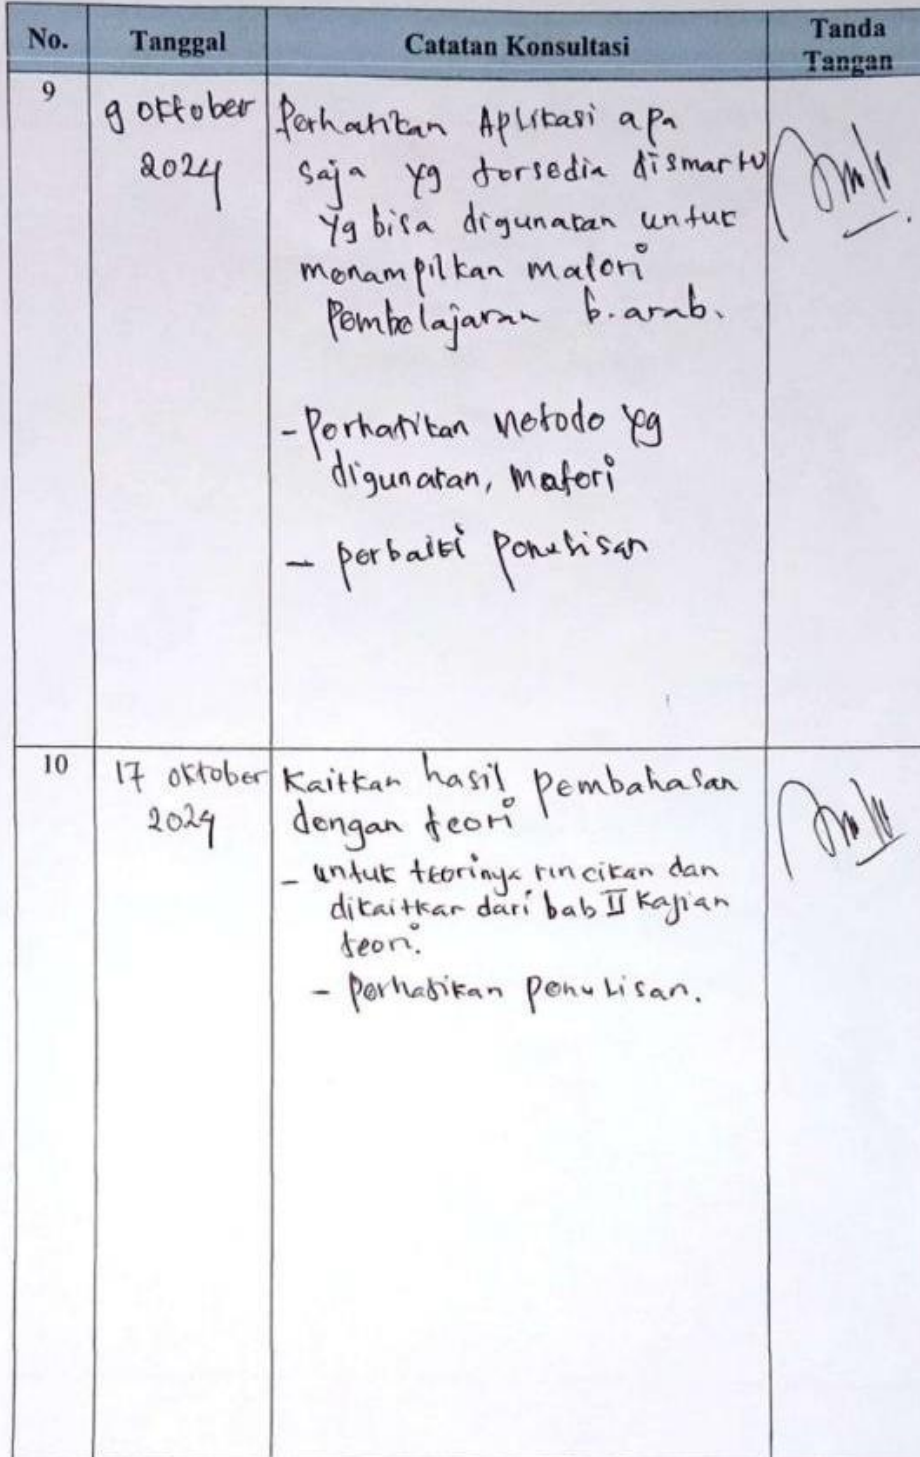 No. Tanggal Catatan Konsultasi Tanda Tangan
9
9 oktober
2024
Perhatikan Aplikasi apa
saja yg tersedia dismartv
yg bisa digunakan untuk
menampilkan materi
Pembelajaran b.arab.
- Perhatikan Metode yg
digunakan, materi
- perbaiki penulisan
10
17 oktober
2024
Kaitkan hasil pembahasan
dengan teori
- untuk teorinya rincikan dan
dikaitkan dari bab II kajian
teori.
- perhatikan penulisan.